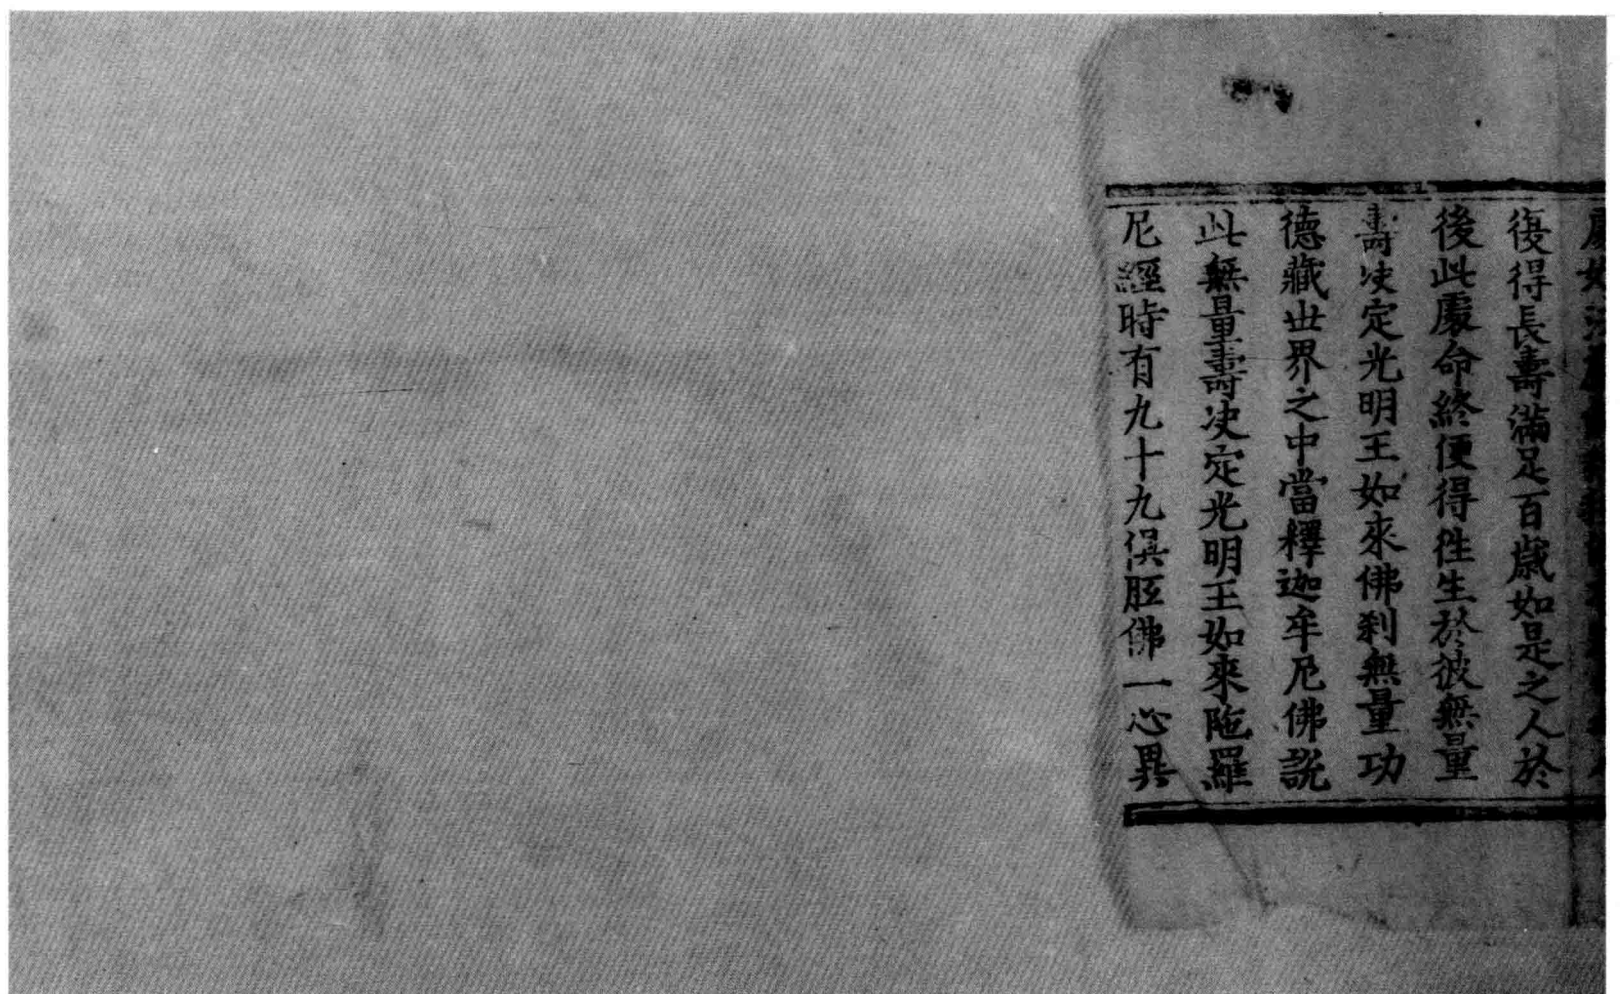 復得長壽滿足百歲如是之人於
後此處命終便得徃生於彼無量
壽决定光明王如來佛刹無量功
德藏世界之中當釋迦牟尼佛説
此無量壽决定光明王如來陁羅
尼經時有九十九俱胝佛一心異